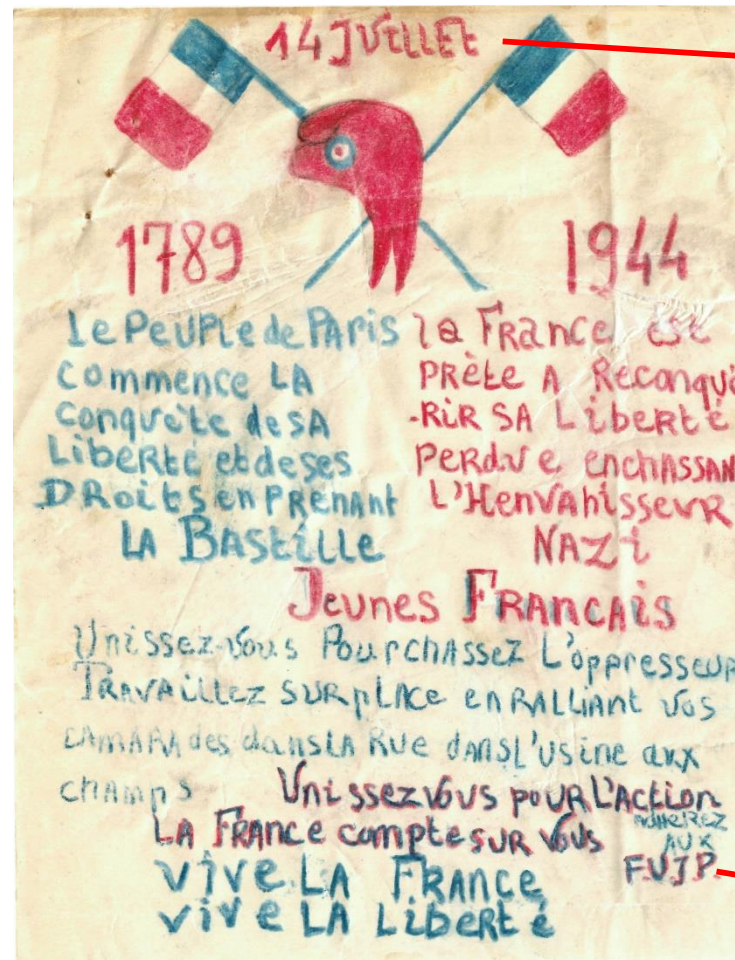 14 JUILLET
1789
1944
Le PeUPLe de PARis
commence LA
conquête de SA
Liberté et de ses
DRoits en PRENAnt
LA BAStiLLe
la FRance est
PRète A Reconqué
-RiR SA Liberté
PeRdue enchASSAN
L'HenvahisseuR
NAZi
Jeunes FRANCAis
Unissez-vous PouRchASSez L'oppresseuR
TRAVAiLLez SUR pLAce en RALLiAnt vos
cAmARAdes dans LA Rue dans L'usine aux
chAmps
Unissez vous pouR L'Action
LA FRAnce compte suR vous
AdHeRez
AUX
F.U.J.P.
vive LA FRAnce
vive LA LibeRté